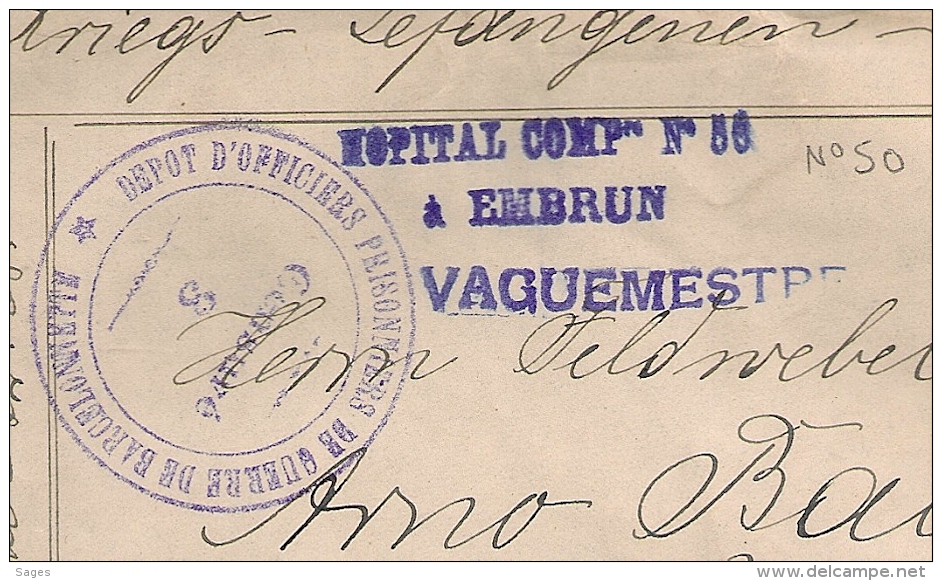 Kriegs-Gefangenen-
HOPITAL COMPre N° 56
à EMBRUN
VAGUEMESTRE
N° 50
DEPOT D'OFFICIERS PRISONNIERS DE GUERRE DE BARCELONNETTE
Herrn Feldwebel
Arno Ba
Sages
www.delcampe.net